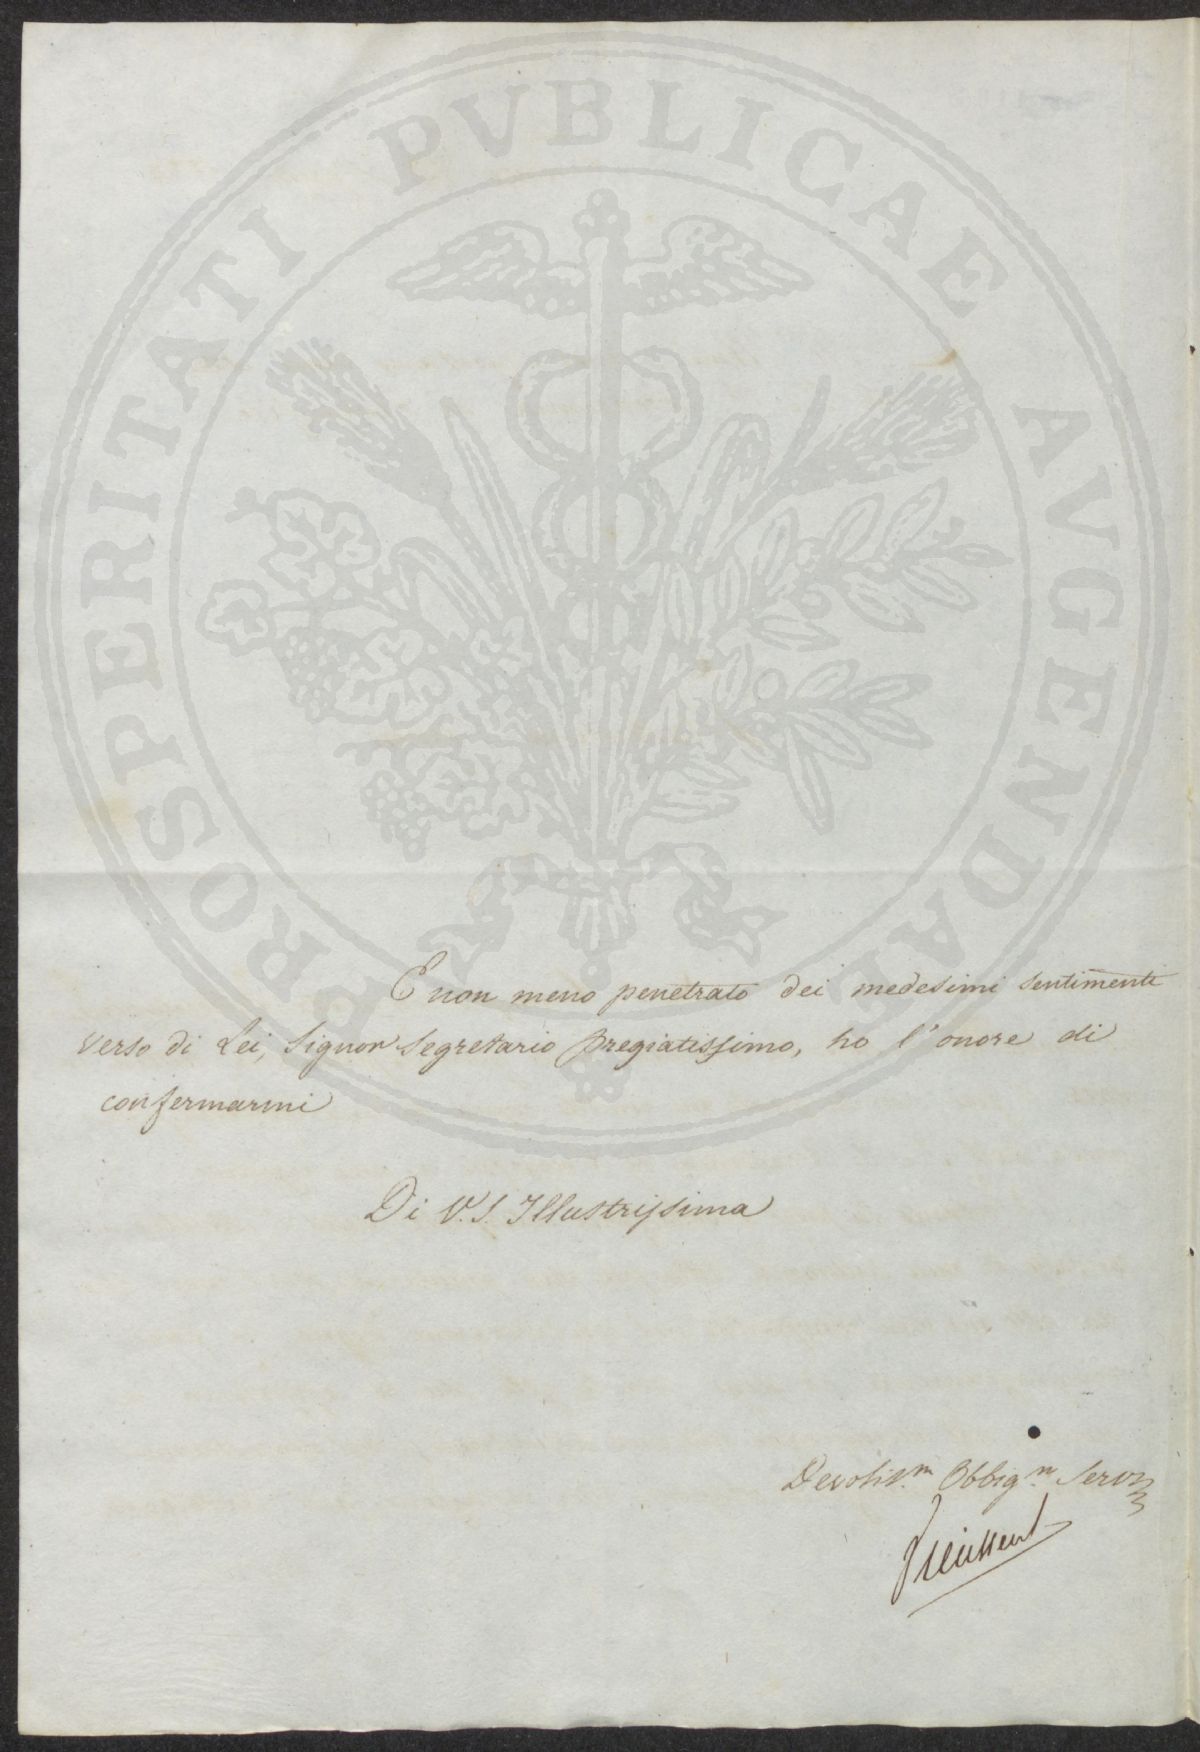 PROSPERITATI PVBLICAE AVGENDAE
E non meno penetrato dei medesimi sentimenti
verso di Lei, Signor Segretario pregiatissimo, ho l'onore di
confermarmi
Di V. S. Illustrissima
Devotiss.m Obblig.m Serv